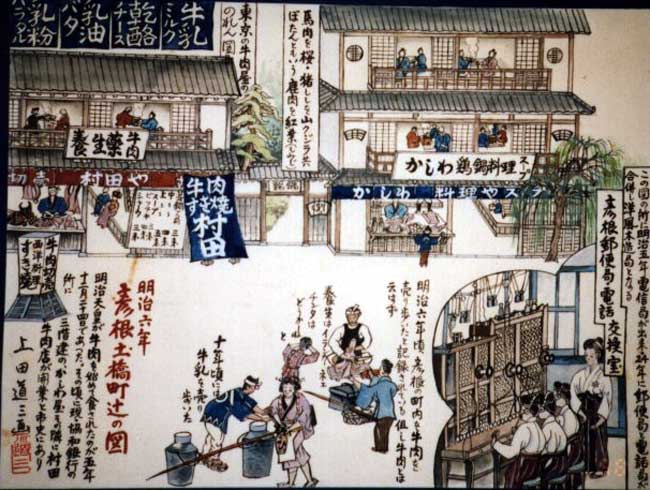 牛乳
ミルク
乾酪
チース
乳油
バタ
乳粉
東京の牛肉屋の
のれん図
馬肉を桜・猪ししを山クジラ又
ぼたんともいう鹿肉を紅葉
養生薬牛肉
村田や
牛肉
すき焼
村田
かしわ鶏鍋料理スープ
かしわ 料理やスープ
この図の所に明治五年電信局が出来
年に郵便局と電話局が
合併し洋風木造局となる
彦根郵便局・電話交換室
牛肉切売
西洋料理
すき焼
明治六年
彦根土橋町辻の図
明治天皇が牛肉を始めて食されたのが五年
十一月二十四日であったその頃現協和銀行の
所に
三階建のかしわ屋その隣に村田
牛肉店が開業と市史にあり
上田道三画
明治六年頃彦根の町内を牛肉を
売り歩いたと記録されている但し牛肉とは
云はず
養生はイラン
カネ
どうかね
と
十年頃には
牛乳を売り
歩いた